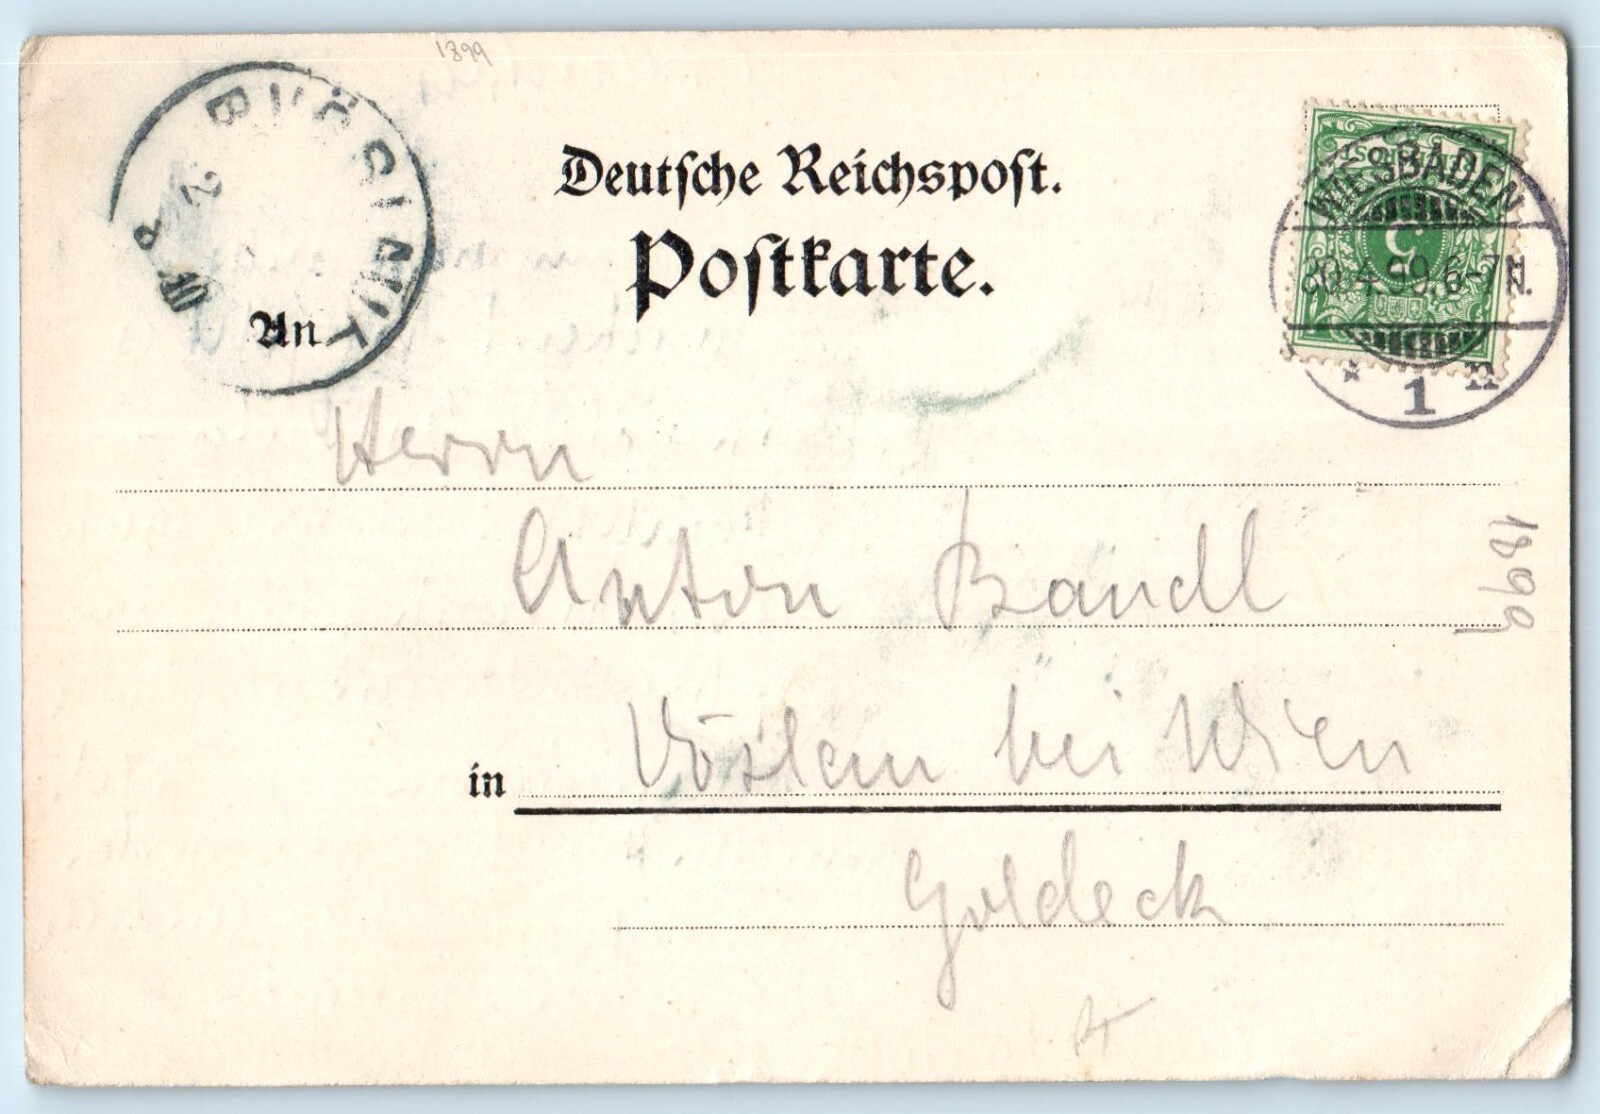 1899
Deutsche Reichspost.
Postkarte.
WIESBADEN
30.4.99.6-7N.
* 1 n
5
2
An
Herrn
Anton Bandl
in Vöslau bei Wien
Goldeck
1899